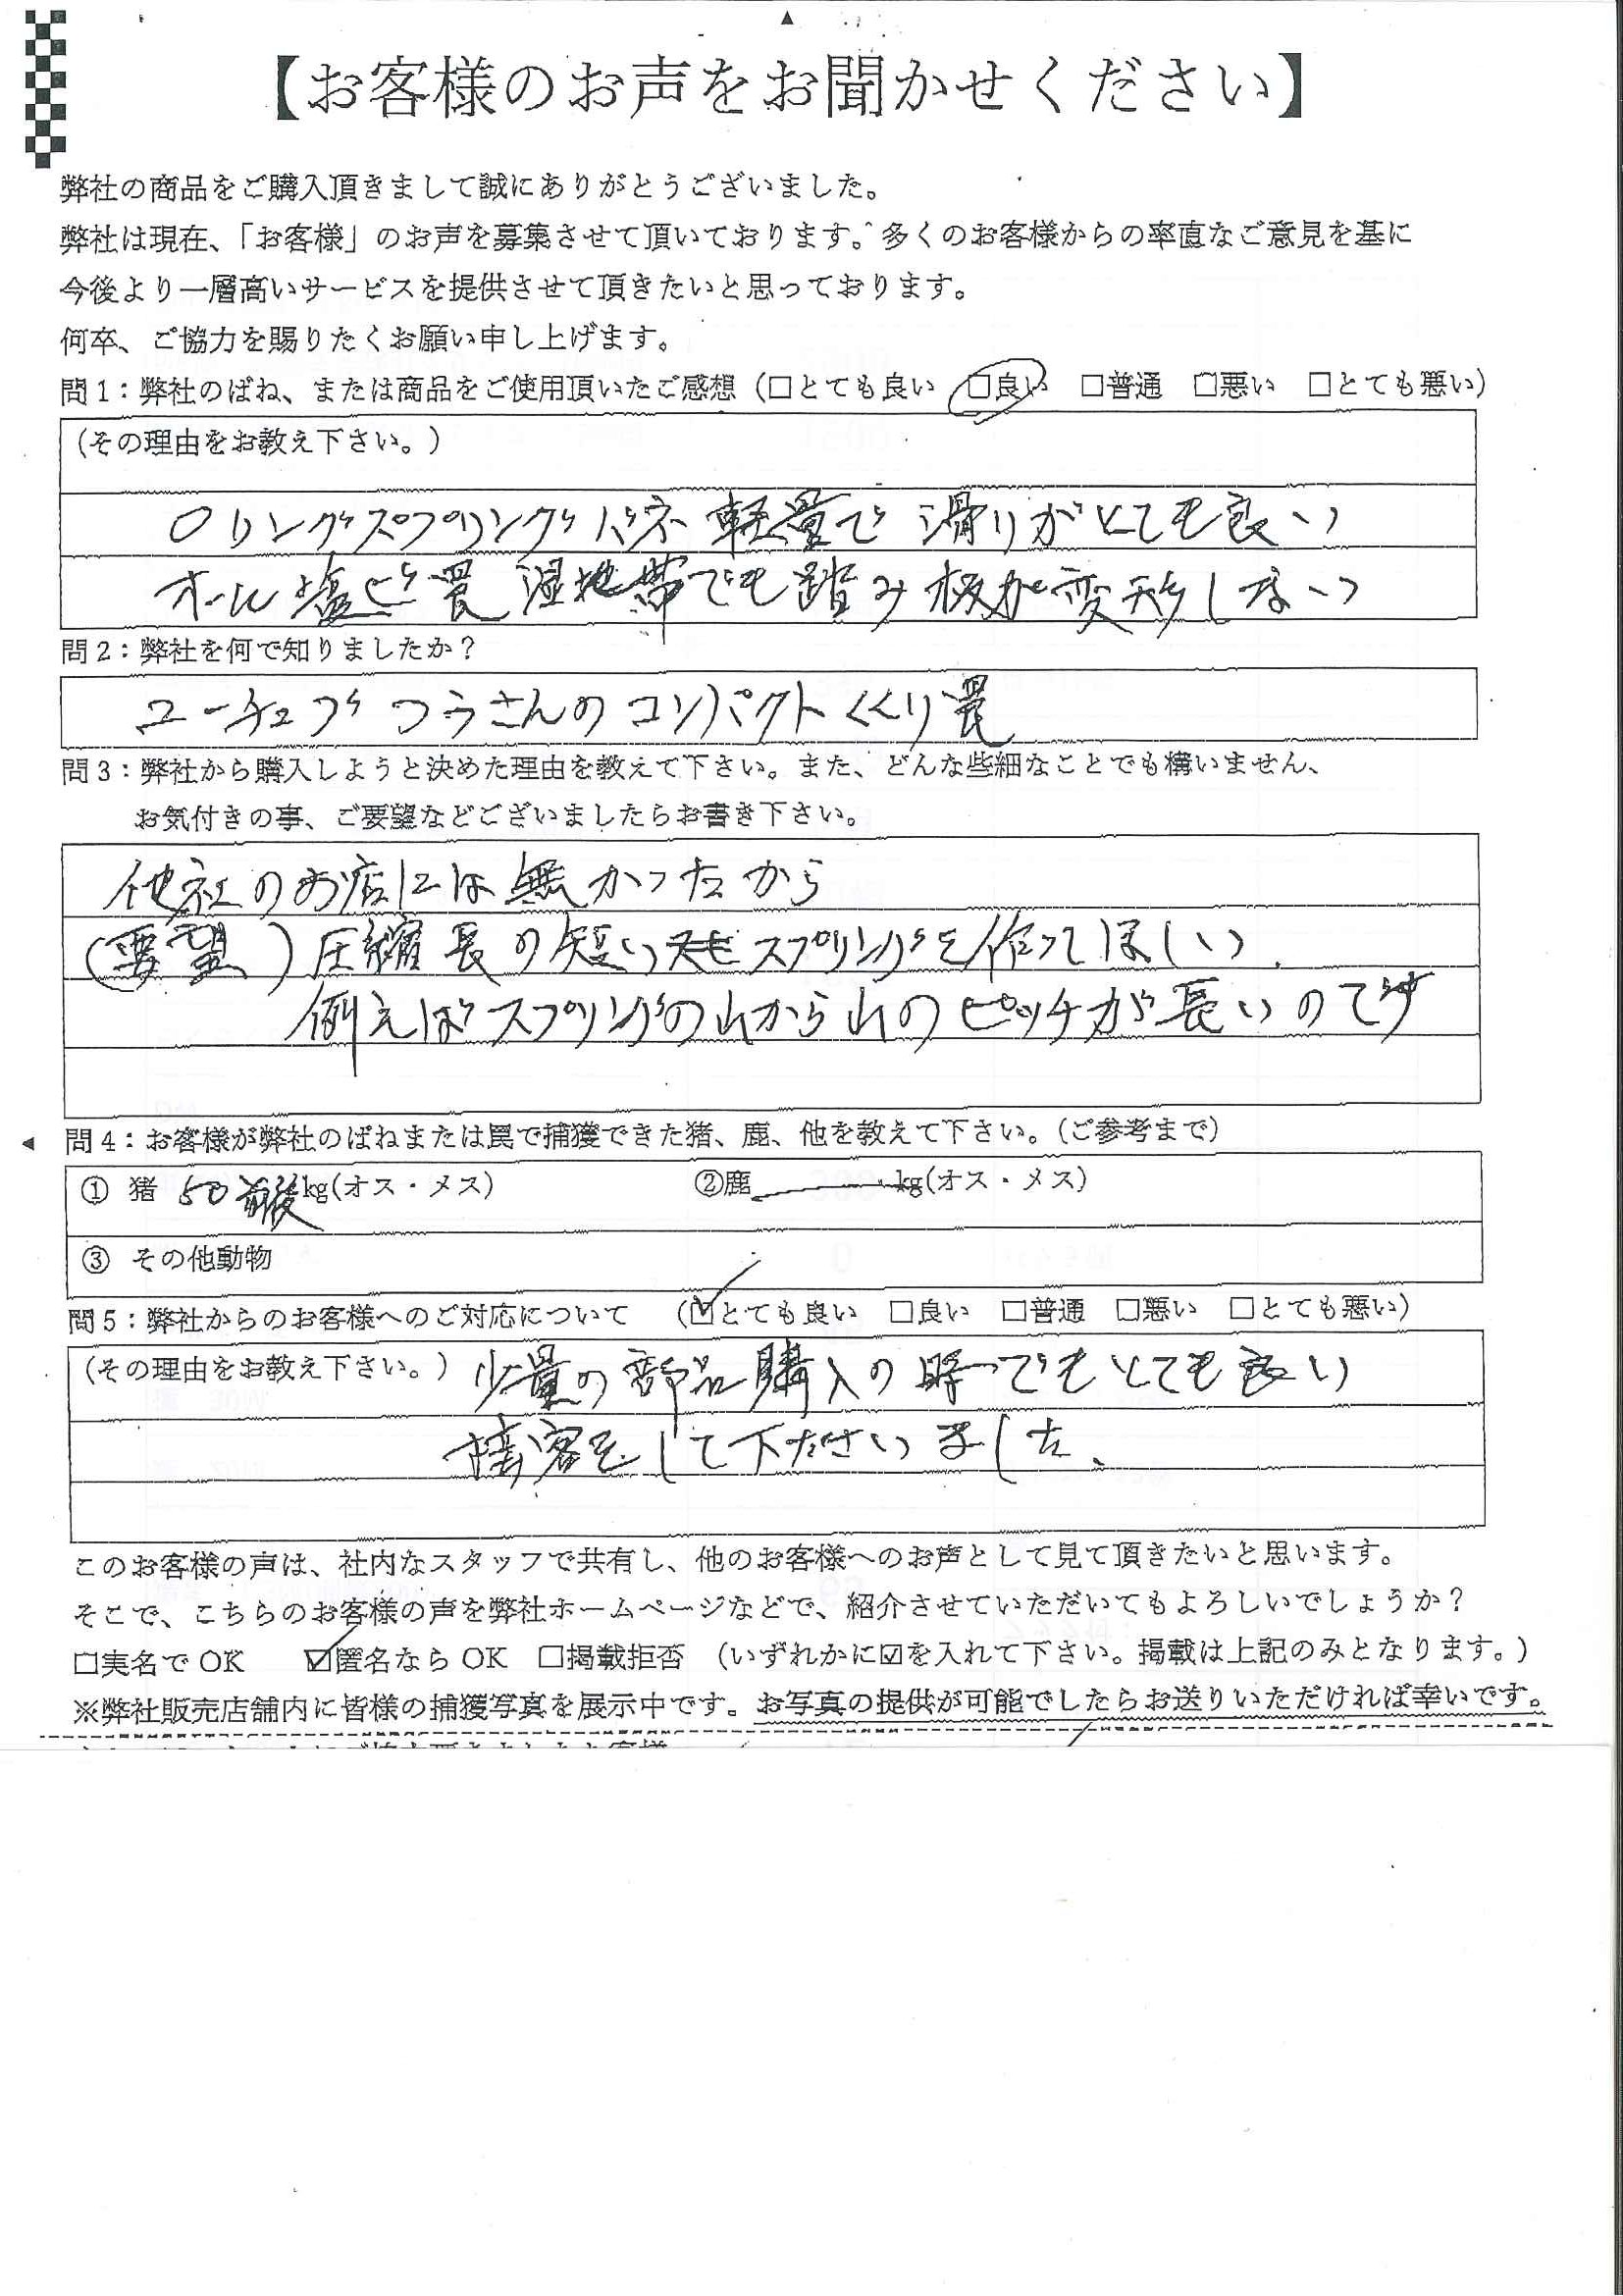 【お客様のお声をお聞かせください】
弊社の商品をご購入頂きまして誠にありがとうございました。
弊社は現在、「お客様」のお声を募集させて頂いております。多くのお客様からの率直なご意見を基に
今後より一層高いサービスを提供させて頂きたいと思っております。
何卒、ご協力を賜りたくお願い申し上げます。
問1：弊社のばね、または商品をご使用頂いたご感想（□とても良い □良い □普通 □悪い □とても悪い）
（その理由をお教え下さい。）
〇リングスプリングバネ 軽量で 滑りがとても良い
オール塩ビ罠 湿地帯でも踏み板が変形しない
問2：弊社を何で知りましたか？
ユーチュブ つうさんの コンパクトくくり罠
問3：弊社から購入しようと決めた理由を教えて下さい。また、どんな些細なことでも構いません、
お気付きの事、ご要望などございましたらお書き下さい。
他社のお店には無かったから
（要望）圧縮長の短い スプリングを作ってほしい.
例えばスプリングの山から山のピッチが長いのです
問4：お客様が弊社のばねまたは罠で捕獲できた猪、鹿、他を教えて下さい。（ご参考まで）
① 猪 50前後kg(オス・メス) ②鹿 kg(オス・メス)
③ その他動物
問5：弊社からのお客様へのご対応について （☑とても良い □良い □普通 □悪い □とても悪い）
（その理由をお教え下さい。）少量の部品購入の時でもとても良い
接客をして下ださいました、
このお客様の声は、社内なスタッフで共有し、他のお客様へのお声として見て頂きたいと思います。
そこで、こちらのお客様の声を弊社ホームページなどで、紹介させていただいてもよろしいでしょうか？
□実名でOK ☑匿名ならOK □掲載拒否 （いずれかに☑を入れて下さい。掲載は上記のみとなります。）
※弊社販売店舗内に皆様の捕獲写真を展示中です。お写真の提供が可能でしたらお送りいただければ幸いです。